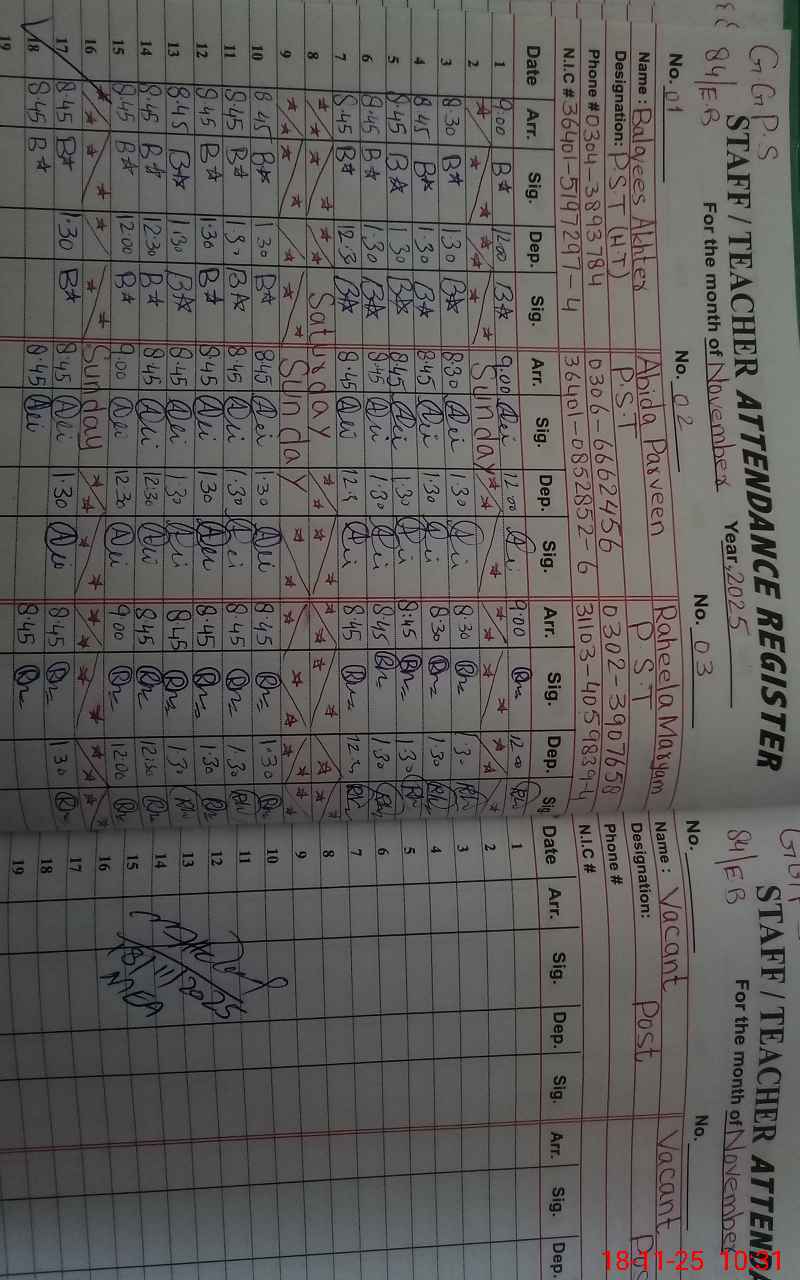 G.G.P.S
84/EB
STAFF / TEACHER ATTENDANCE REGISTER
For the month of November Year, 2025
No. 01 No. 02 No. 03
Name : Balqees Akhter Abida Parveen Raheela Maryam
Designation: P.S.T (H T) P.S.T P.S.T
Phone # 0304-3893784 0306-6662456 0302-3907658
N.I.C # 36401-5197297-4 36401-0852852-6 31103-4059839-4
Date Arr. Sig. Dep. Sig. Arr. Sig. Dep. Sig. Arr. Sig. Dep. Sig.
1 9:00 B* 12:00 B* 9:00 12:00 9:00 12:00
2 Sunday
3 8:30 B* 1:30 B* 8:30 1:30 8:30 1:30
4 8:45 B* 1:30 B* 8:45 1:30 8:30 1:30
5 8:45 B* 1:30 B* 8:45 1:30 8:45 1:30
6 8:45 B* 1:30 B* 8:45 1:30 8:45 1:30
7 8:45 B* 12:30 B* 8:45 8:45
8 Saturday
9 Sunday
10 8:45 B* 1:30 B* 8:45 1:30 8:45 1:30
11 8:45 B* 1:30 B* 8:45 1:30 8:45 1:30
12 8:45 B* 1:30 B* 8:45 1:30 8:45 1:30
13 8:45 B* 1:30 B* 8:45 1:30 8:45 1:30
14 8:45 B* 12:30 B* 8:45 12:30 8:45 12:30
15 8:45 B* 12:00 B* 9:00 12:30 9:00 12:00
16 Sunday
17 8:45 B* 1:30 B* 8:45 1:30 8:45 1:30
18 8:45 B* 8:45 8:45
19
84/EB
STAFF / TEACHER ATTEND
For the month of November
No. No.
Name : Vacant Vacant
Designation: Post
Phone #
N.I.C #
Date Arr. Sig. Dep. Sig. Arr. Sig. Dep.
1
2
3
4
5
6
7
8
9
10
11
12
13
14
15
16
17
18
19
18/11/2025
18-11-25 10:31